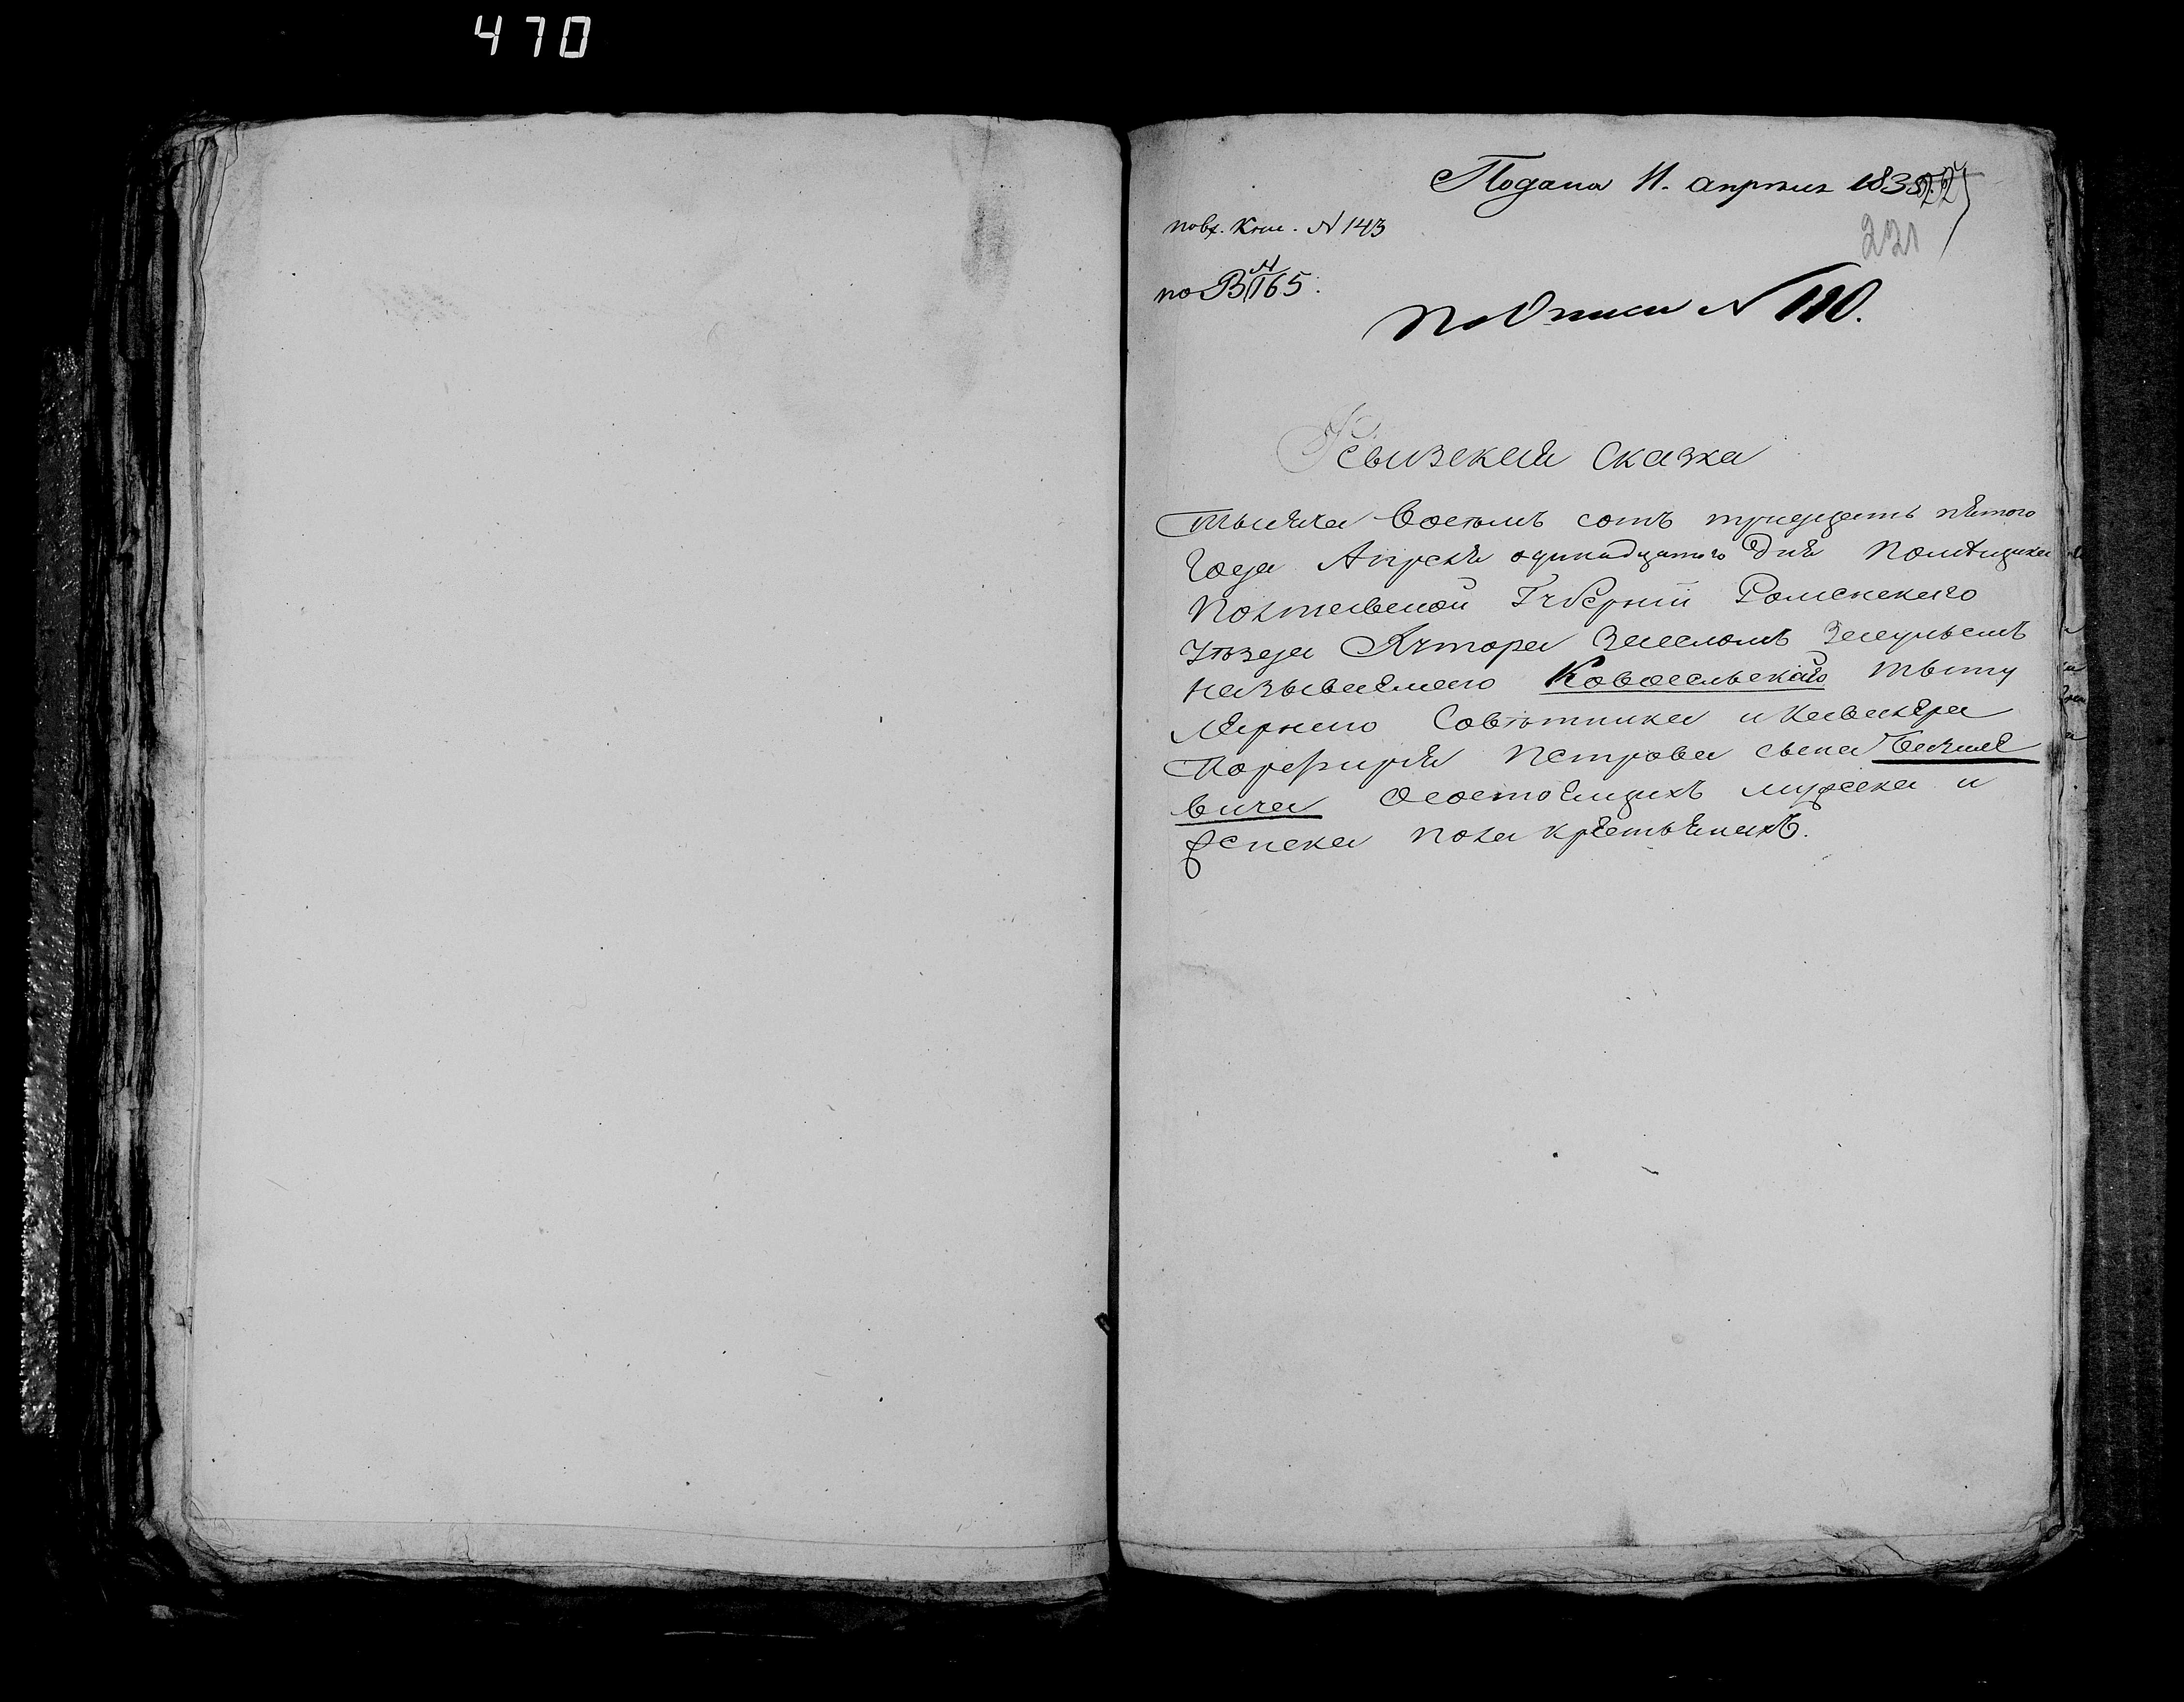 470
Подана 11. апреля 1835
227
повх. Кни. № 143
221
по В № 165.
По Описи № 110.
Ревизская Сказка
Тысяча восемь сотъ тридцать пятого
Года Апреля одинадцатого дня Помещика
Полтавской Губернии Роменского
уѣзда Хутора
называемаго Ковосельскаго титу
лярного Совѣтника и Кавалера
Порфирия Петрова сына
вича о состоящихъ мужска и
женска пола крестьянахъ.